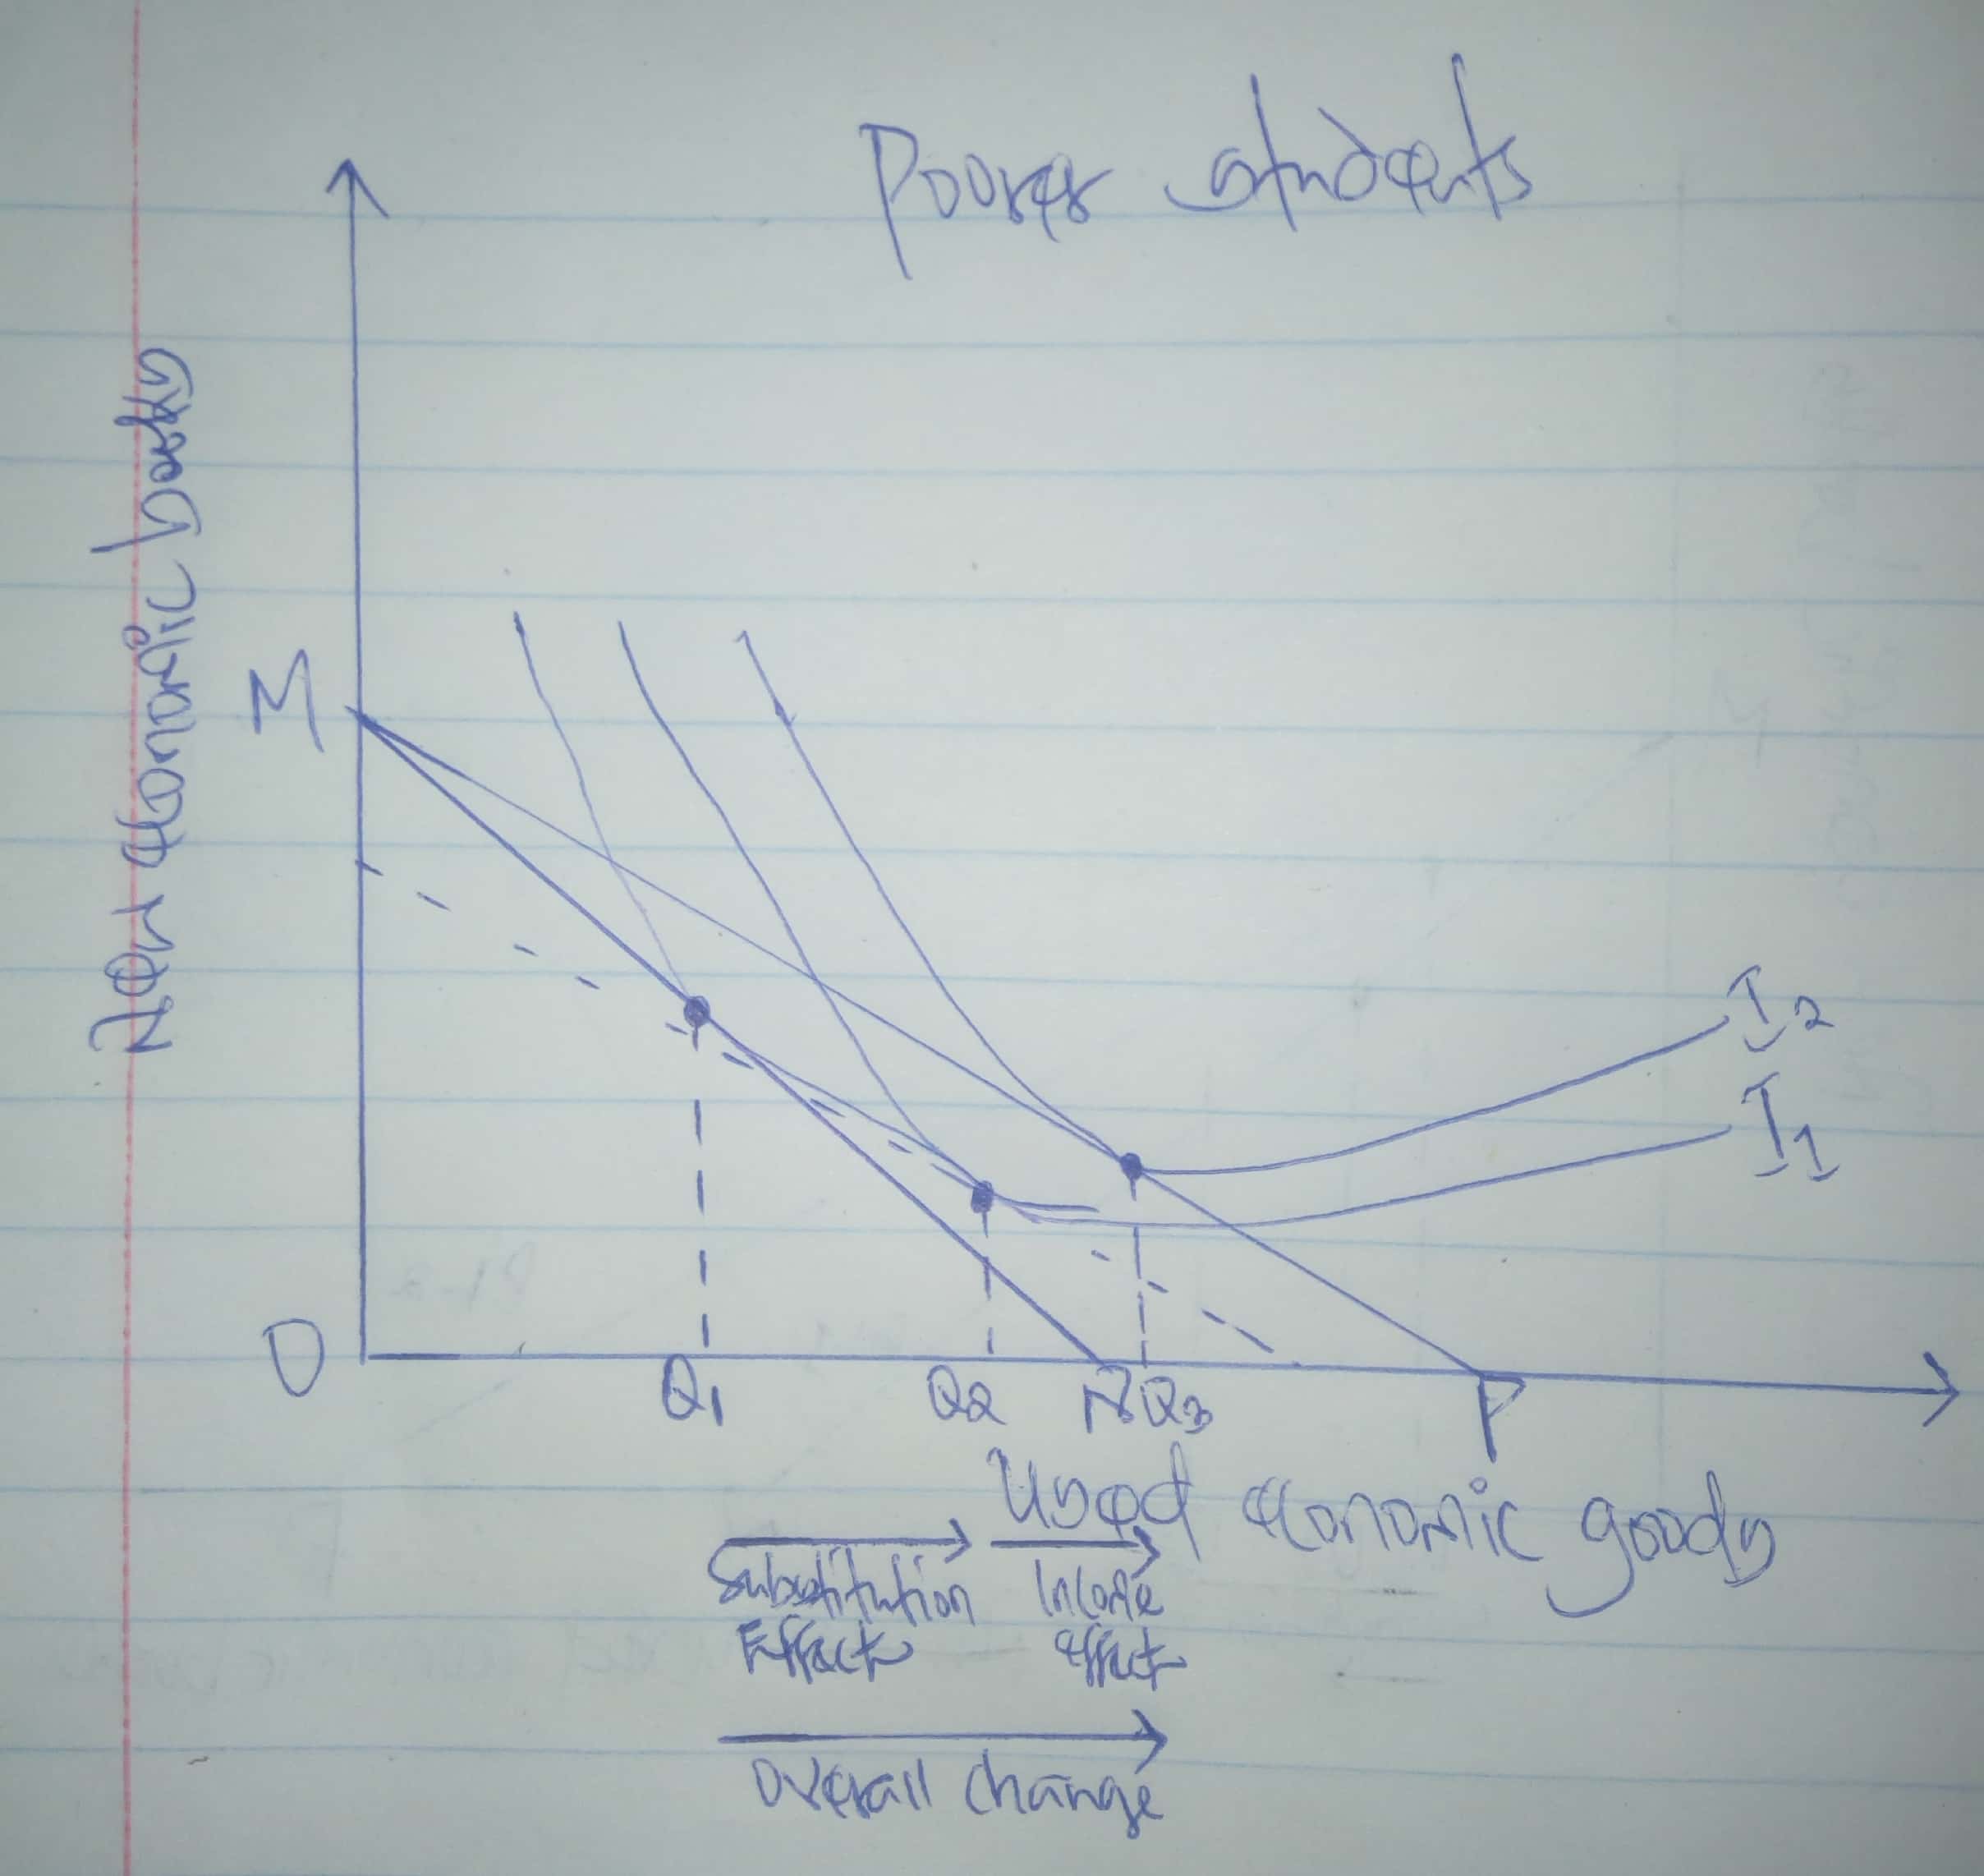 Poorer students
New economic books
M
I2
I1
O
Q1
Q2
N
Q3
P
Used economic goods
Substitution
Effect
Income
effect
overall change